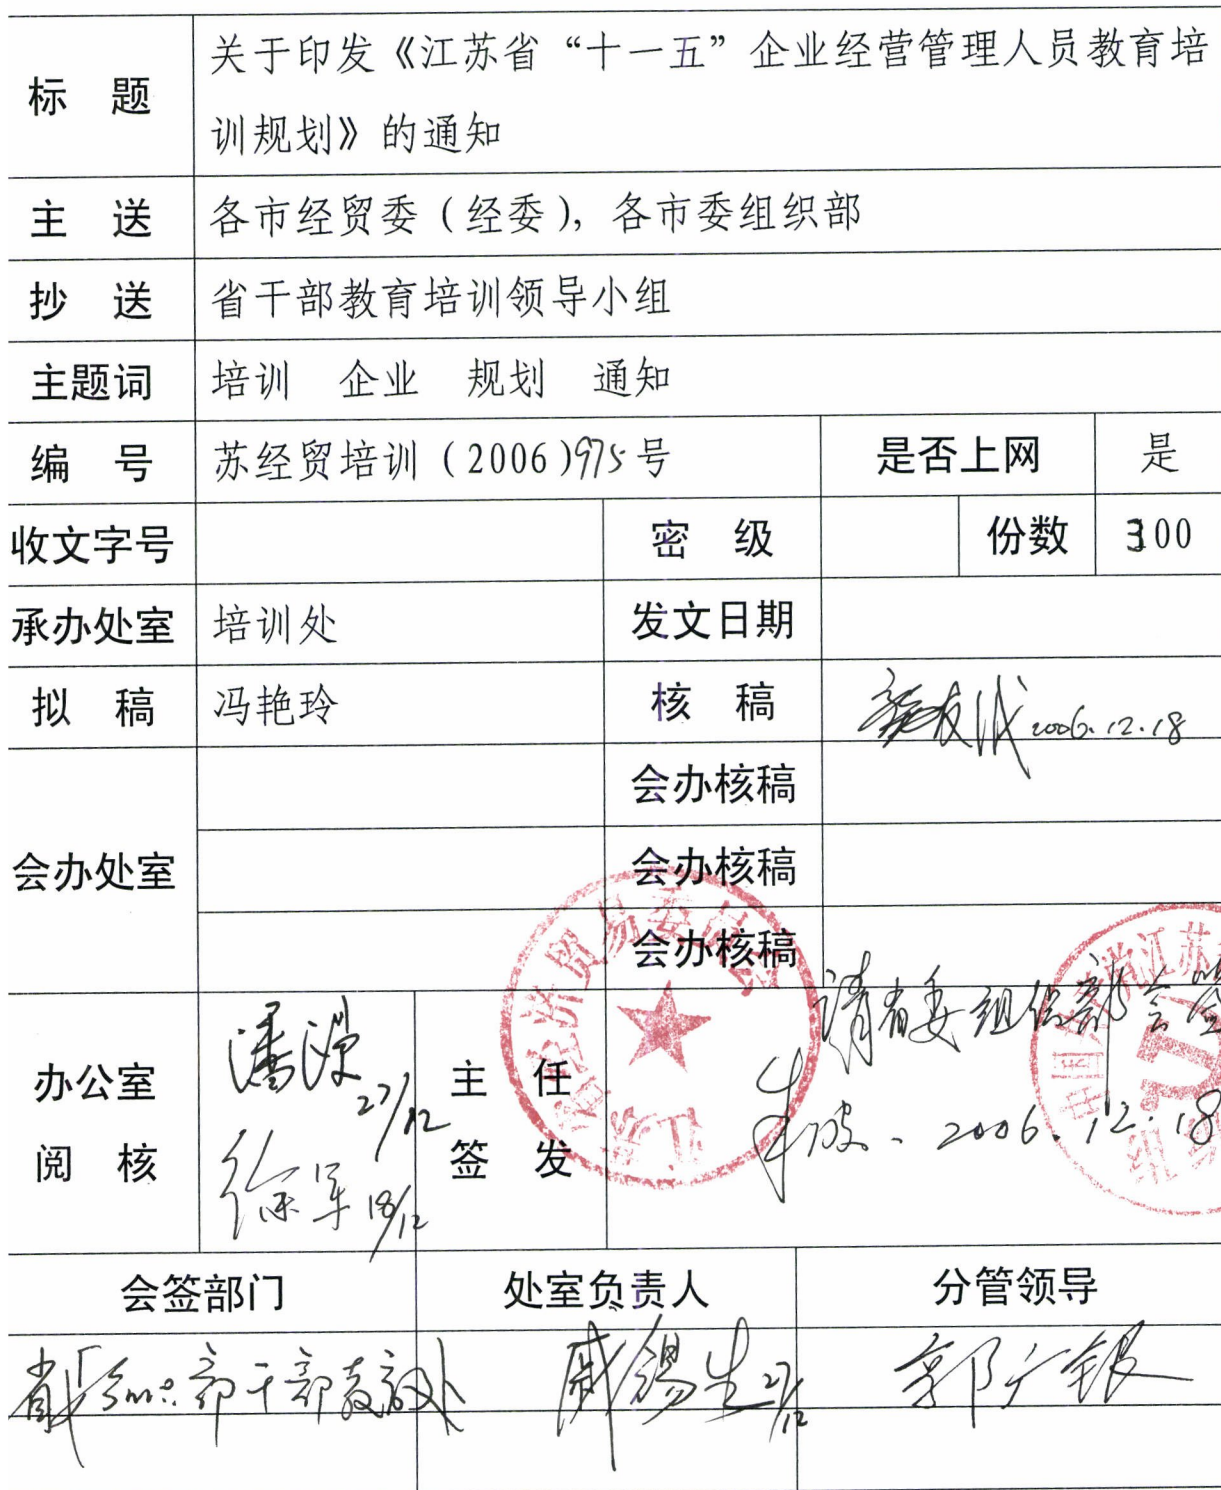 标 题 关于印发《江苏省“十一五”企业经营管理人员教育培
训规划》的通知
主 送 各市经贸委（经委），各市委组织部
抄 送 省干部教育培训领导小组
主题词 培训 企业 规划 通知
编 号 苏经贸培训（2006）975号 是否上网 是
收文字号 密 级 份数 300
承办处室 培训处 发文日期
拟 稿 冯艳玲 核 稿 2006.12.18
会办核稿
会办处室 会办核稿
会办核稿
请省委组织部会签
办公室 主 任
27/12
2006.12.18
阅 核 徐军 18/12 签 发
会签部门 处室负责人 分管领导
省委组织部干部教育处 戚锡生 27/12 郭广银